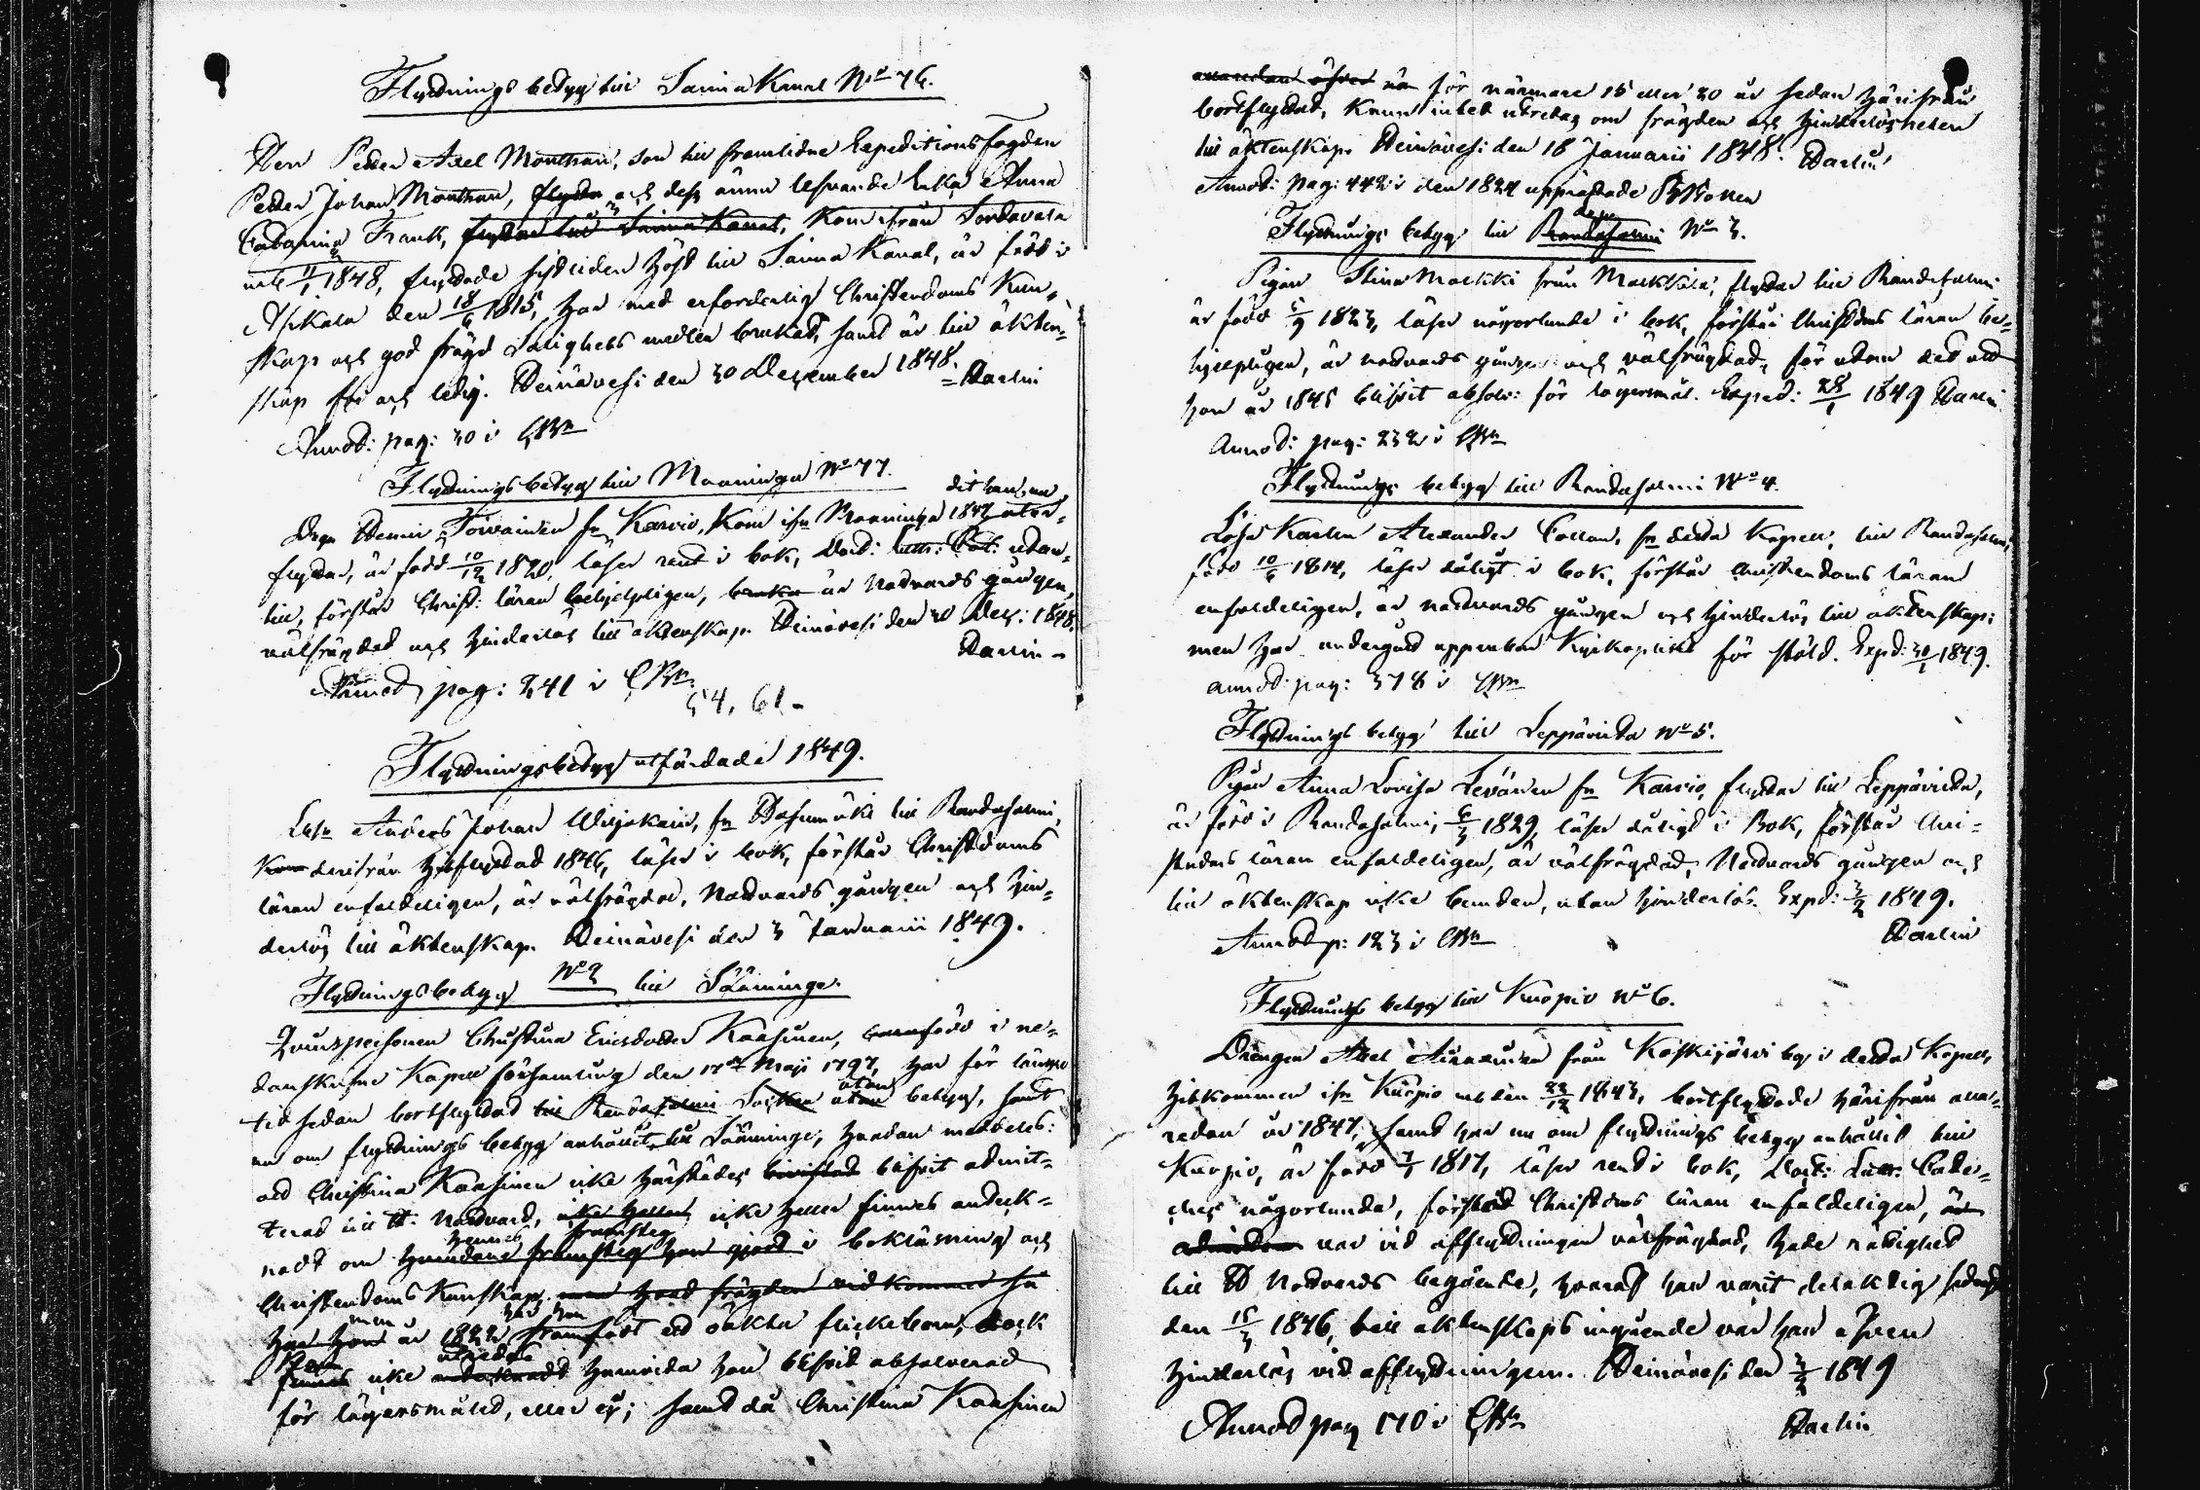 Flyttningsbetyg till Saima Kanal No 76.
Herr Petter Axel Monthan, son till framlidne Expeditionsfogden
Petter Johan Monthan, flyttar och dess ännu lefvande Enka Anna
Catharina Frank, flyttar till Saima Kanal, Kom ifrån Sordavala
1848, flyttade sistliden höst till Saima Kanal, är född i
Asikala den 18/6 1815, har med erforderlig Christendoms Kun-
skap och god frägd Salighets medlen brukat, samt är till äkten-
skap fri och ledig. Heinävesi den 30 December 1848. Darlin
Annot: pag: 30 i CBn
Flyttningsbetyg till Maaninga No 77.
dit han nu
Drgn Henric Toivainen fn Karvio, Kom ifn Maaninga 1847 åter-
flyttar, är född 10/12 1820, läser rent i bok, Doct: Luth: Cat: utan-
till, förstår Christ: läran behjelpligen, är Nattvards gången,
välfrägdad och hinderlös till äktenskap. Heinävesi den 30 Dec: 1848.
Darlin
Annot pag: 241 i CBn
54, 61-
Flyttningsbetyg utfärdade 1849.
Anders Johan Wirjakain, fn Hasumäki till Randasalmi,
Kom derifrån hitflyttad 1846, läser i bok, förstår Christdoms
läran enfaldeligen, är välfrägdad, Nattvards gången och hin-
derlös till äktenskap. Heinävesi den 3 Januarii 1849.
Flyttningsbetyg No 2 till Sääminge.
Qvinspersonen Christina Ericsdotter Kaasinen, född i ne-
danskrefne Kapell församling den 17de Maji 1797, har för längre
tid sedan bortflyttad till Randasalmi Socken utan utan betyg, samt
nu om flyttnings betyg anhållit till Sääminge, hvadan meddeles:
att Christina Kaasinen icke härstädes blifvit admit-
terad till H: Nattvard, icke heller icke heller finnes anteck-
nadt om hennes framsteg i bokläsning och
Christendoms Kunskap, men hvad frägden vidkommer så
har hon år 1822 framfödt ett oäkta flickebarn, dock
Kan icke utredas huruvida hon blifvit absolverad
för lägersmålet, eller ej; samt då Christina Kaasinen
för närmare 15 eller 20 år sedan härifrån
bortflyttat, Kan intet utredas om frägden och hinderlösheten
till äktenskap. Heinävesi den 18 Januarii 1848. Darlin
Annot: pag: 442 i den 1824 upprättade
Flyttnings betyg till Randasalmi No 3.
Pigan Stina Malkki från Malkkila, flyttar till Randasalmi
är född 5/9 1823, läser någorlunda i bok, förstår Christdms läran be-
hjelpligen, är nattvards gången och välfrägdad, för utan det att
hon år 1845 blifvit absolv: för lägersmål. Exped: 28/1 1849 Darlin
Annot: pag: 232 i CBn
Flyttnings betyg till Randasalmi No 4.
Karlen Alexander Collan, fn detta Kapell, till Randasalmi,
född 10/6 1814, läser dåligt i bok, förstår Christendoms läran
enfaldeligen, är nattvards gången och hinderlös till äktenskap;
men har undergått uppenbar Kyrkoplikt för stöld. Expd: 30/1 1849.
Annot: pag: 378 i CBn
Flyttnings betyg till Leppävirta No 5.
Pigan Anna Lovisa Leväinen fn Karvio, flyttar till Leppävirta,
är född i Randasalmi, 6/3 1829, läser dåligt i Bok, förstår Chri-
stndms läran enfaldeligen, är välfrägdad, Nattvards gången och
till äktenskap icke bunden, utan hinderlös. Expd: 3/2 1849.
Annot p: 123 i CBn
Darlin
Flyttnings betyg till Kuopio No 6.
Drängen Axel från Koskijärvi by i detta Kapell,
hitkommen ifn Kuopio 1843, bortflyttade härifrån alla-
redan år 1847, samt har nu om flyttnings betyg anhållit till
Kuopio, är född 1817, läser rent i bok, Doct: Luth: Cate-
ches någorlunda, förstod Christdms läran enfaldeligen, är
var vid afflyttningen välfrägdad, hade rättighet
till H Nattvards begående, hvaraf han varit delaktig sednast
den 15/3 1846, till äktenskaps ingående var han äfven
hinderlös vid afflyttningen. Heinävesi den 3/2 1849
Annot pag 170 i CBn
Darlin